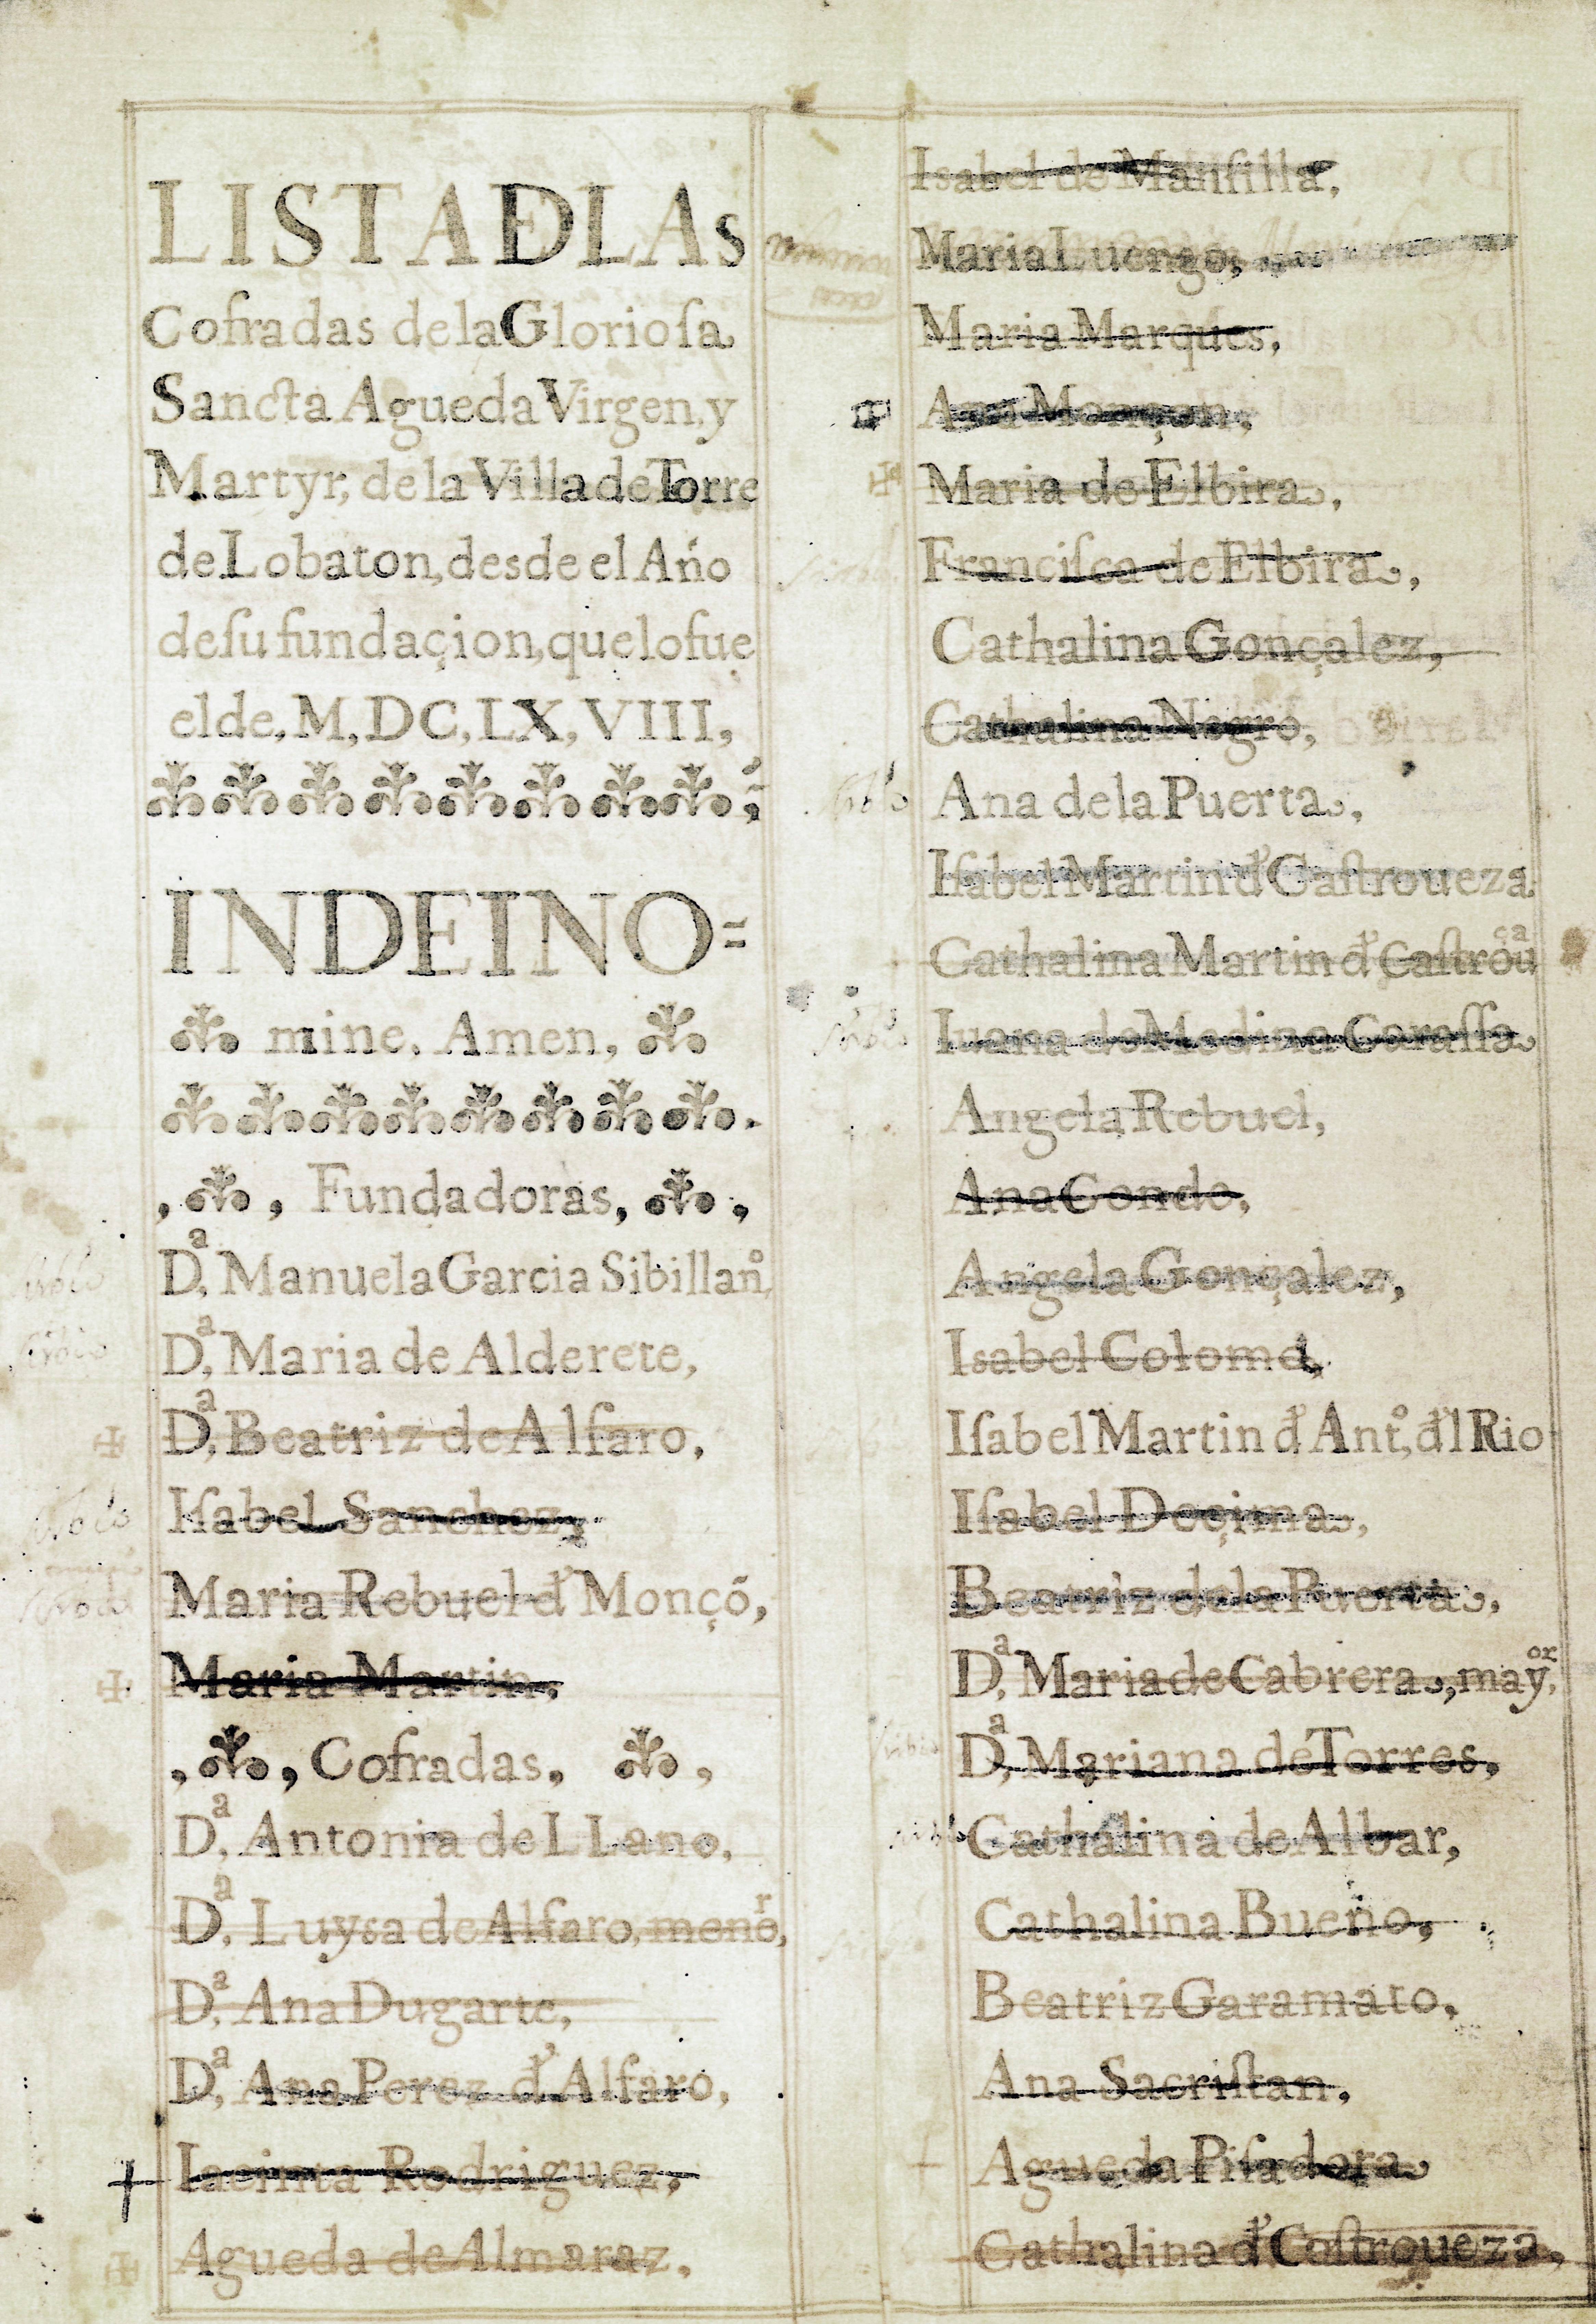 LISTA DE LAs
Cofradas de la Glorioſa
Sancta Agueda Virgen, y
Martyr, de la Villa de Torre
de Lobaton, desde el Año
de ſu fundaçion, que lo fue
el de, M, DC, LX, VIII,
IN DEI NO=
mine. Amen,
, Fundadoras, ,
Dª, Manuela Garcia Sibillanº,
Dª, Maria de Alderete,
Dª, Beatriz de Alfaro,
Iſabel Sanchez,
Maria Rebuel d' Monçõ,
Maria Martin,
, Cofradas, ,
Dª, Antonia de L Lano,
Dª, Luysa de Alfaro, menoʳ,
Dª, Ana Dugarte,
Dª, Ana Perez d' Alfaro,
Iacinta Rodriguez,
Agueda de Almaraz,
Isabel de Manſilla,
Maria Luengo,
Maria Marques,
Ana Monçon,
Maria de Elbira,
Franciſca de Elbira,
Cathalina Gonçalez,
Cathalina Negro,
Ana de la Puerta,
Iſabel Martin d' Caſtroueza
Cathalina Martin d' Caſtrouᶜᵃ
Iuana de Medina Caraſſa
Angela Rebuel,
Ana Conde,
Angela Gonçalez,
Isabel Coloma,
Iſabel Martin d' Antº, d'l Rio
Iſabel Deçima,
Beatriz de la Puerta,
Dª, Maria de Cabrera, mayᵒʳ,
Dª, Mariana de Torres,
Cathalina de Albar,
Cathalina Bueno,
Beatriz Garamato,
Ana Sacriſtan,
Agueda Piſadora
Cathalina d' Caſtroueza,